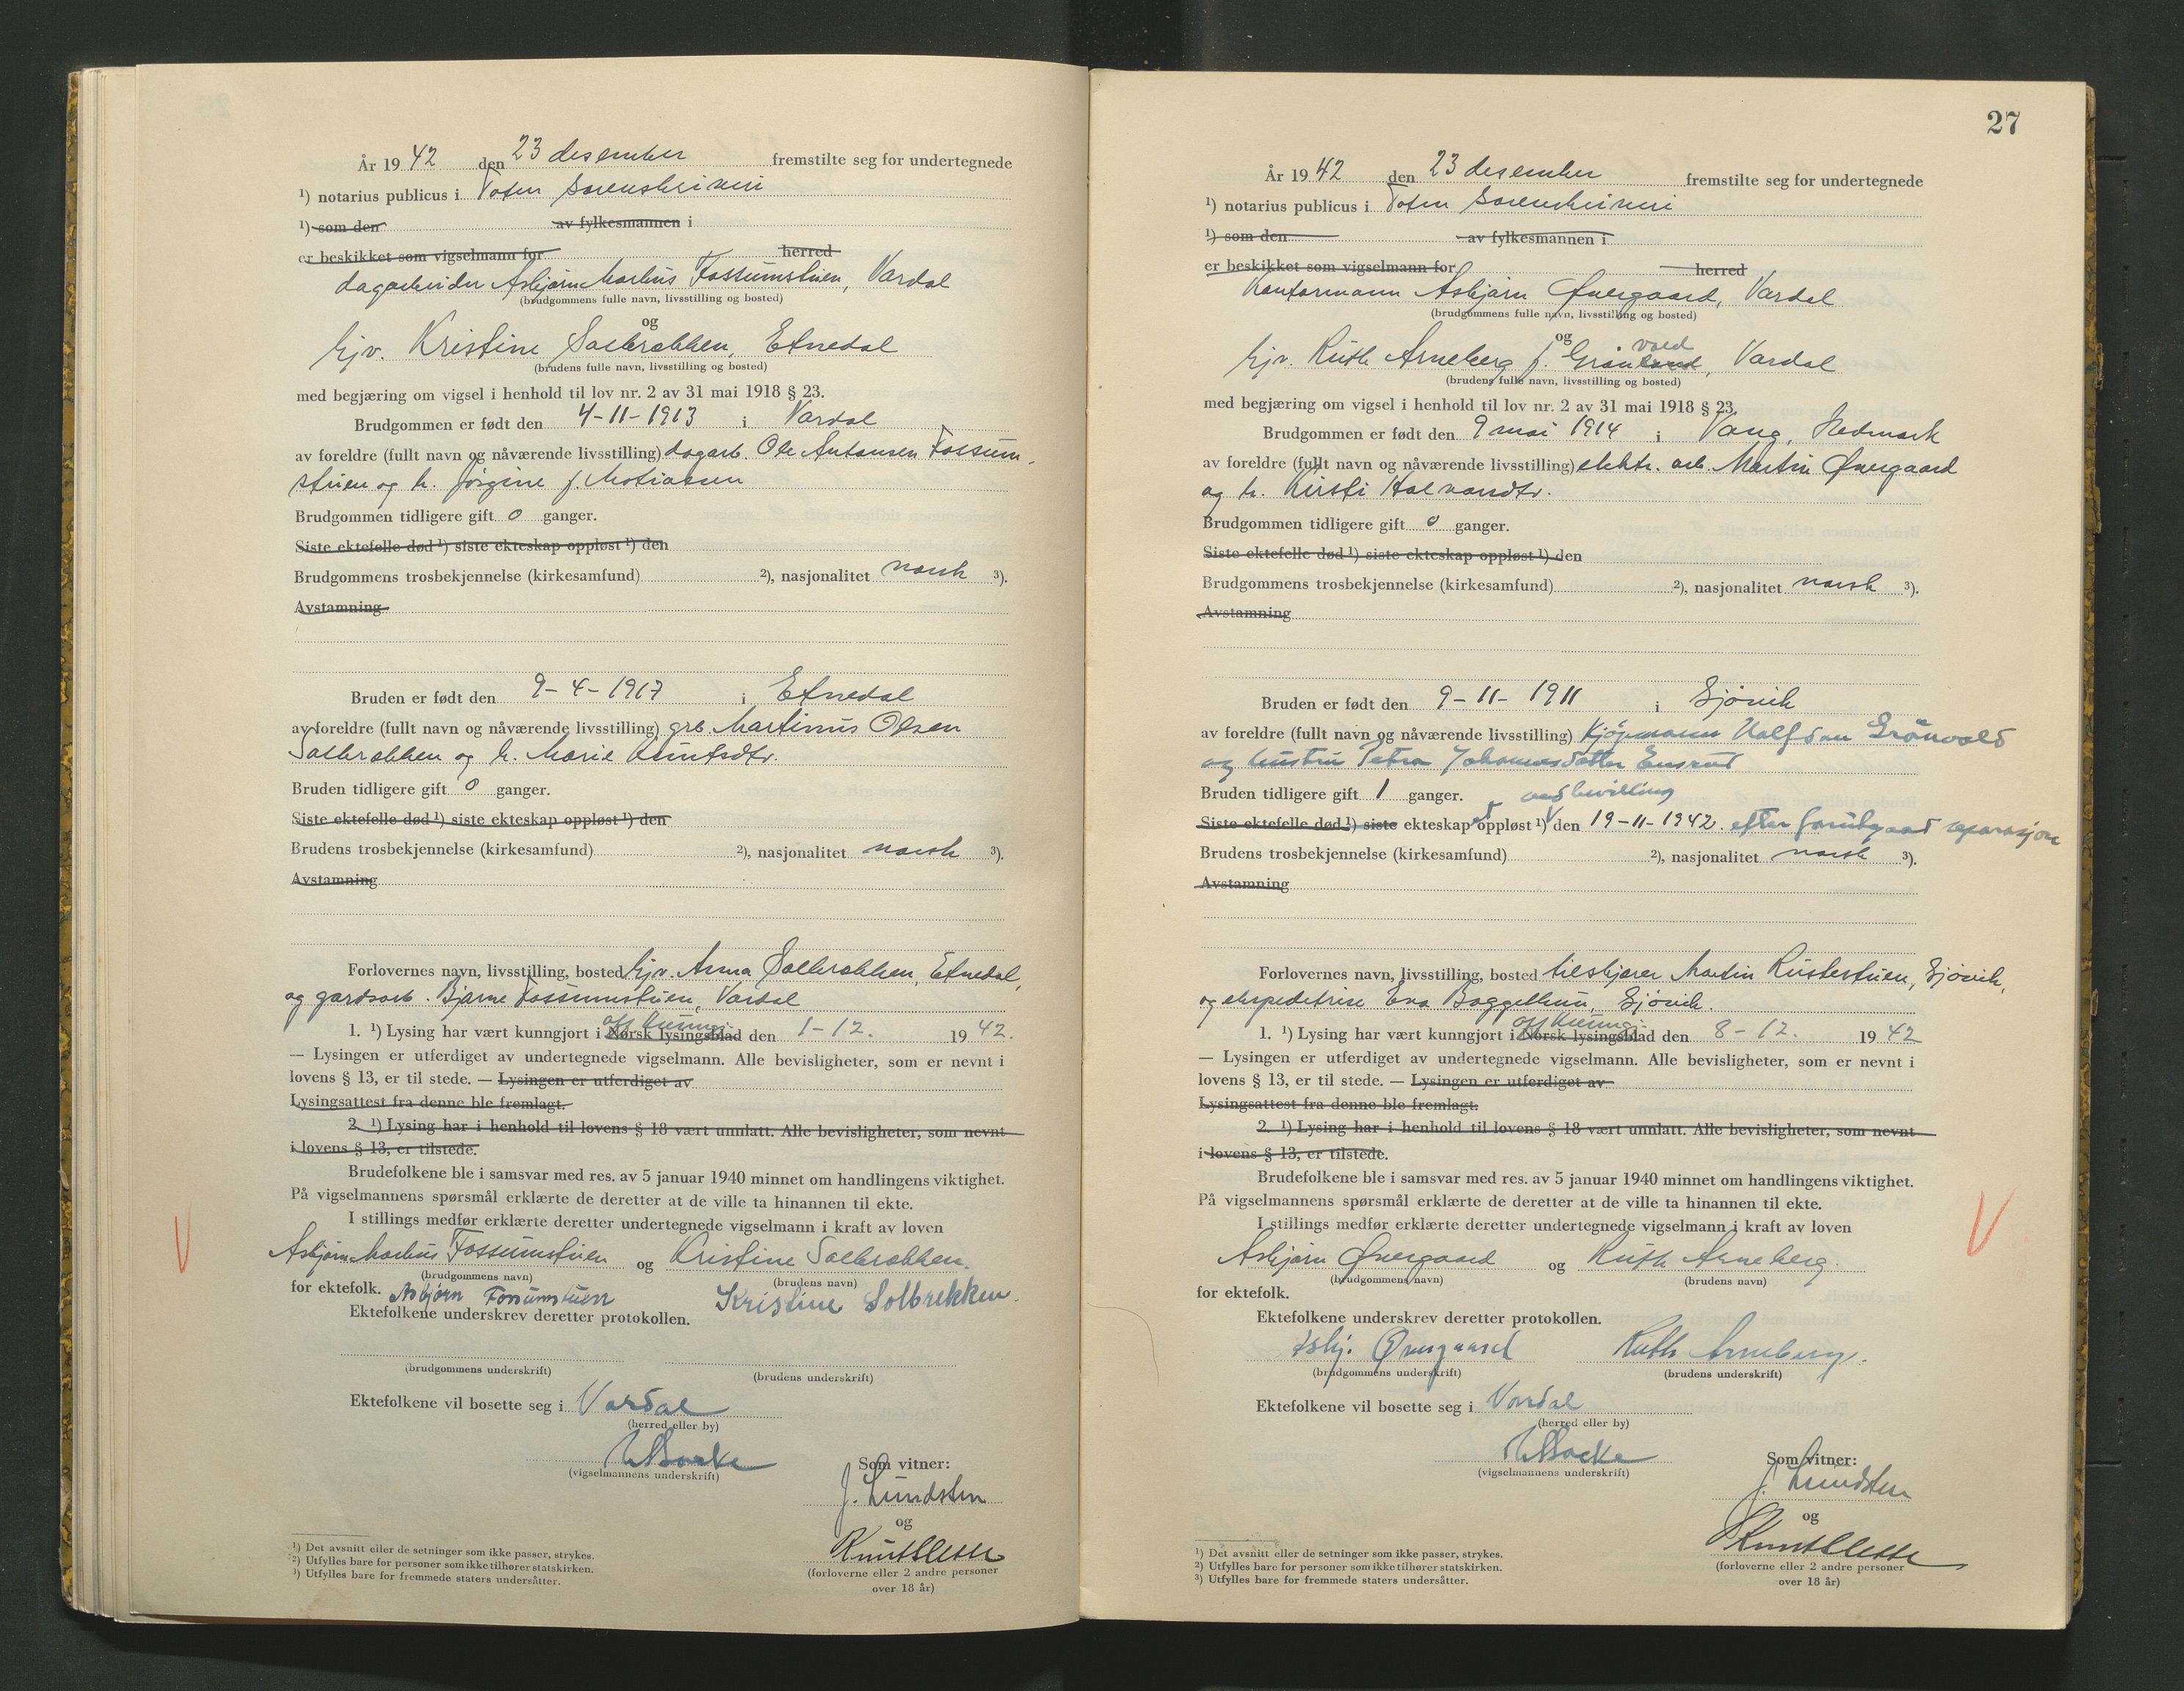 År 1942 den 23 desember fremstilte seg for undertegnede
¹) notarius publicus i Toten Sorenskriveri
¹) som den av fylkesmannen i
er beskikket som vigselmann for herred
dagarbeider Asbjørn Markus Fossumstuen, Vardal
(brudgommens fulle navn, livsstilling og bosted)
og
hjv. Kristine Solbrekken, Etnedal
(brudens fulle navn, livsstilling og bosted)
med begjæring om vigsel i henhold til lov nr. 2 av 31 mai 1918 § 23.
Brudgommen er født den 4-11-1913 i Vardal
av foreldre (fullt navn og nåværende livsstilling) dagarb. Ole Antonsen Fossum-
stuen og h. Jørgine f.
Brudgommen tidligere gift 0 ganger.
Siste ektefelle død ¹) siste ekteskap oppløst ¹) den
Brudgommens trosbekjennelse (kirkesamfund) ²), nasjonalitet norsk ³).
Avstamning
Bruden er født den 9-4-1917 i Etnedal
av foreldre (fullt navn og nåværende livsstilling) grb. Martinus Olsen
Solbrekken og h. Marie Knutsdtr.
Bruden tidligere gift 0 ganger.
Siste ektefelle død ¹) siste ekteskap oppløst ¹) den
Brudens trosbekjennelse (kirkesamfund) ²), nasjonalitet norsk ³).
Avstamning
Forlovernes navn, livsstilling, bosted hjv. Anna Solbrekken, Etnedal,
og gardsarb. Bjarne Fossumstuen, Vardal
off kunngj.
1. ¹) Lysing har vært kunngjort i Norsk lysingsblad den 1-12. 1942.
— Lysingen er utferdiget av undertegnede vigselmann. Alle bevisligheter, som er nevnt i
lovens § 13, er til stede. — Lysingen er utferdiget av
Lysingsattest fra denne ble fremlagt.
2. ¹) Lysing har i henhold til lovens § 18 vært unnlatt. Alle bevisligheter, som nevnt
i lovens § 13, er tilstede.
Brudefolkene ble i samsvar med res. av 5 januar 1940 minnet om handlingens viktighet.
På vigselmannens spørsmål erklærte de deretter at de ville ta hinannen til ekte.
I stillings medfør erklærte deretter undertegnede vigselmann i kraft av loven
Asbjørn Markus Fossumstuen og Kristine Solbrekken.
(brudgommens navn) (brudens navn)
for ektefolk. Asbjørn Fossumstuen Kristine Solbrekken.
Ektefolkene underskrev deretter protokollen.
(brudgommens underskrift) (brudens underskrift)
Ektefolkene vil bosette seg i Vardal
(herred eller by)
(vigselmannens underskrift)
Som vitner:
J. Lundsten
og
(forloverne eller 2 andre personer
over 18 år)
¹) Det avsnitt eller de setninger som ikke passer, strykes.
²) Utfylles bare for personer som ikke tilhører statskirken.
³) Utfylles bare for fremmede staters undersåtter.
27
År 1942 den 23 desember fremstilte seg for undertegnede
¹) notarius publicus i Toten Sorenskriveri
¹) som den av fylkesmannen i
er beskikket som vigselmann for herred
Kontormann Asbjørn Øvergaard, Vardal
(brudgommens fulle navn, livsstilling og bosted)
og
vold
hjv. Ruth Arneberg f. Grönlund, Vardal
(brudens fulle navn, livsstilling og bosted)
med begjæring om vigsel i henhold til lov nr. 2 av 31 mai 1918 § 23.
Brudgommen er født den 9 mai 1914 i Vang, Hedmark
av foreldre (fullt navn og nåværende livsstilling) elektr. arb. Martin Øvergaard
og h. Kirsti Halvorsdtr.
Brudgommen tidligere gift 0 ganger.
Siste ektefelle død ¹) siste ekteskap oppløst ¹) den
Brudgommens trosbekjennelse (kirkesamfund) ²), nasjonalitet norsk ³).
Avstamning
Bruden er født den 9-11-1911 i Gjövik
av foreldre (fullt navn og nåværende livsstilling) kjöpmann Halfdan Grönvold
og hustru Petra Johannesdatter Ensrud
Bruden tidligere gift 1 ganger. ved bevilling
Siste ektefelle død ¹) siste ekteskap oppløst ¹) den 19-11-1942. efter forutgaad separasjon
Brudens trosbekjennelse (kirkesamfund) ²), nasjonalitet norsk ³).
Avstamning
Forlovernes navn, livsstilling, bosted tilskjærer Martin Rustestuen, Gjövik,
og ekspeditrise Eva Baggethun, Gjövik.
off kunngj.
1. ¹) Lysing har vært kunngjort i Norsk lysingsblad den 8-12. 1942
— Lysingen er utferdiget av undertegnede vigselmann. Alle bevisligheter, som er nevnt i
lovens § 13, er til stede. — Lysingen er utferdiget av
Lysingsattest fra denne ble fremlagt.
2. ¹) Lysing har i henhold til lovens § 18 vært unnlatt. Alle bevisligheter, som nevnt
i lovens § 13, er tilstede.
Brudefolkene ble i samsvar med res. av 5 januar 1940 minnet om handlingens viktighet.
På vigselmannens spørsmål erklærte de deretter at de ville ta hinannen til ekte.
I stillings medfør erklærte deretter undertegnede vigselmann i kraft av loven
Asbjørn Øvergaard og Ruth Arneberg.
(brudgommens navn) (brudens navn)
for ektefolk.
Ektefolkene underskrev deretter protokollen.
Asbj. Øvergaard Ruth Arneberg.
(brudgommens underskrift) (brudens underskrift)
Ektefolkene vil bosette seg i Vardal
(herred eller by)
(vigselmannens underskrift)
Som vitner:
J. Lundsten
og
(forloverne eller 2 andre personer
over 18 år)
¹) Det avsnitt eller de setninger som ikke passer, strykes.
²) Utfylles bare for personer som ikke tilhører statskirken.
³) Utfylles bare for fremmede staters undersåtter.